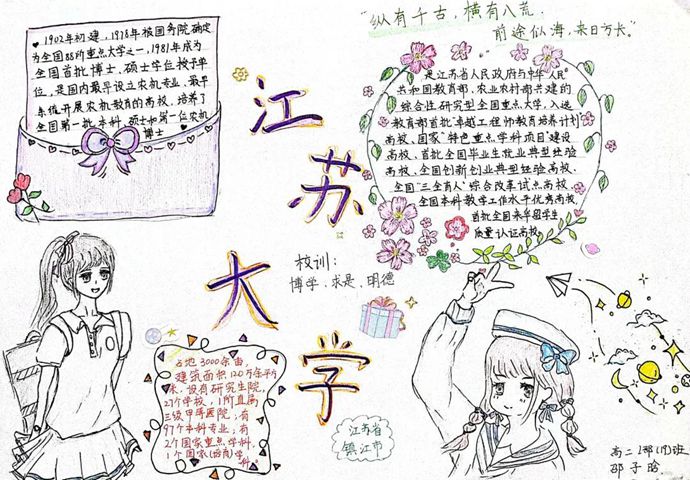 1902年初建,1978年被国务院确定
为全国88所重点大学之一,1981年成为
全国首批博士、硕士学位授予单
位,是国内最早设立农机专业、最早
系统开展农机教育的高校,培养了
全国第一批本科,硕士和第一位农机
博士
“纵有千古,横有八荒,
前途似海,来日方长。”
是江苏省人民政府与中华人民
共和国教育部、农业农村部共建的
综合性研究型全国重点大学,入选
“教育部首批卓越工程师教育培养计划”
高校、国家“特色重点学科项目”建设
高校、首批全国毕业生就业典型经验
高校、全国创新创业典型经验高校、
全国“三全育人”综合改革试点高校、
全国本科教学工作水平优秀高校、
首批全国来华留学生
质量认证高校
江
苏
大
学
校训:
博学、求是、明德
占地3000余亩,
建筑面积120万余平方
米,设有研究生院,
27个学校,1所直属
三级甲等医院,有
97个本科专业,有
2个国家重点学科,
1个国家(培育)学
科。
江苏省
镇江市
高二1部(17)班
邵子晗